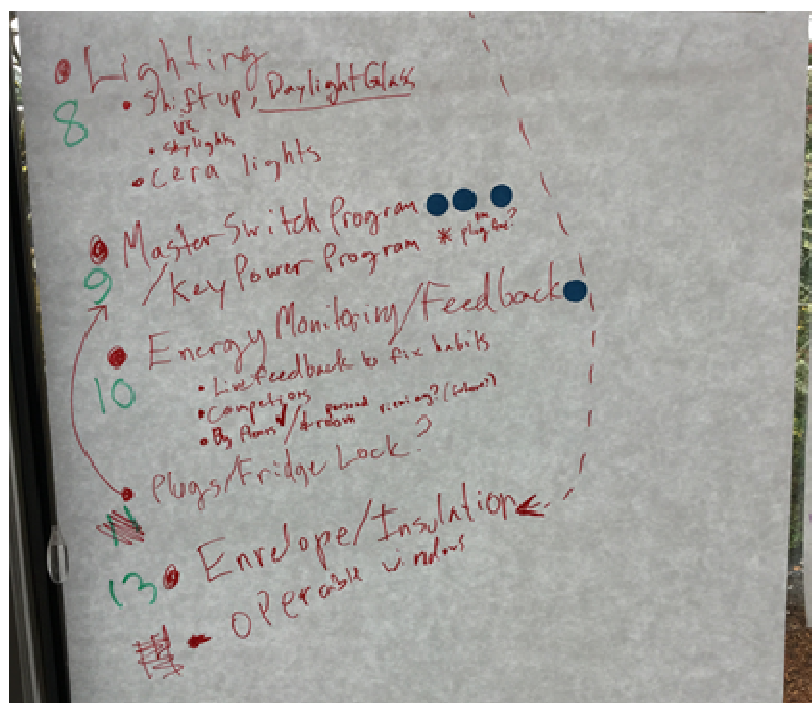 • Lighting
8
• Shift up, Daylight Glass
vs
• Skylights
• Cera lights
• Master Switch Program
9
/Key Power Program * plug
• Energy Monitoring/Feedback
10
• Live feedback to fix habits
• Competitors
• By floors / 4-room personal viewing?
• Plugs/Fridge Lock?
• Envelope/Insulation
13
- Operable windows